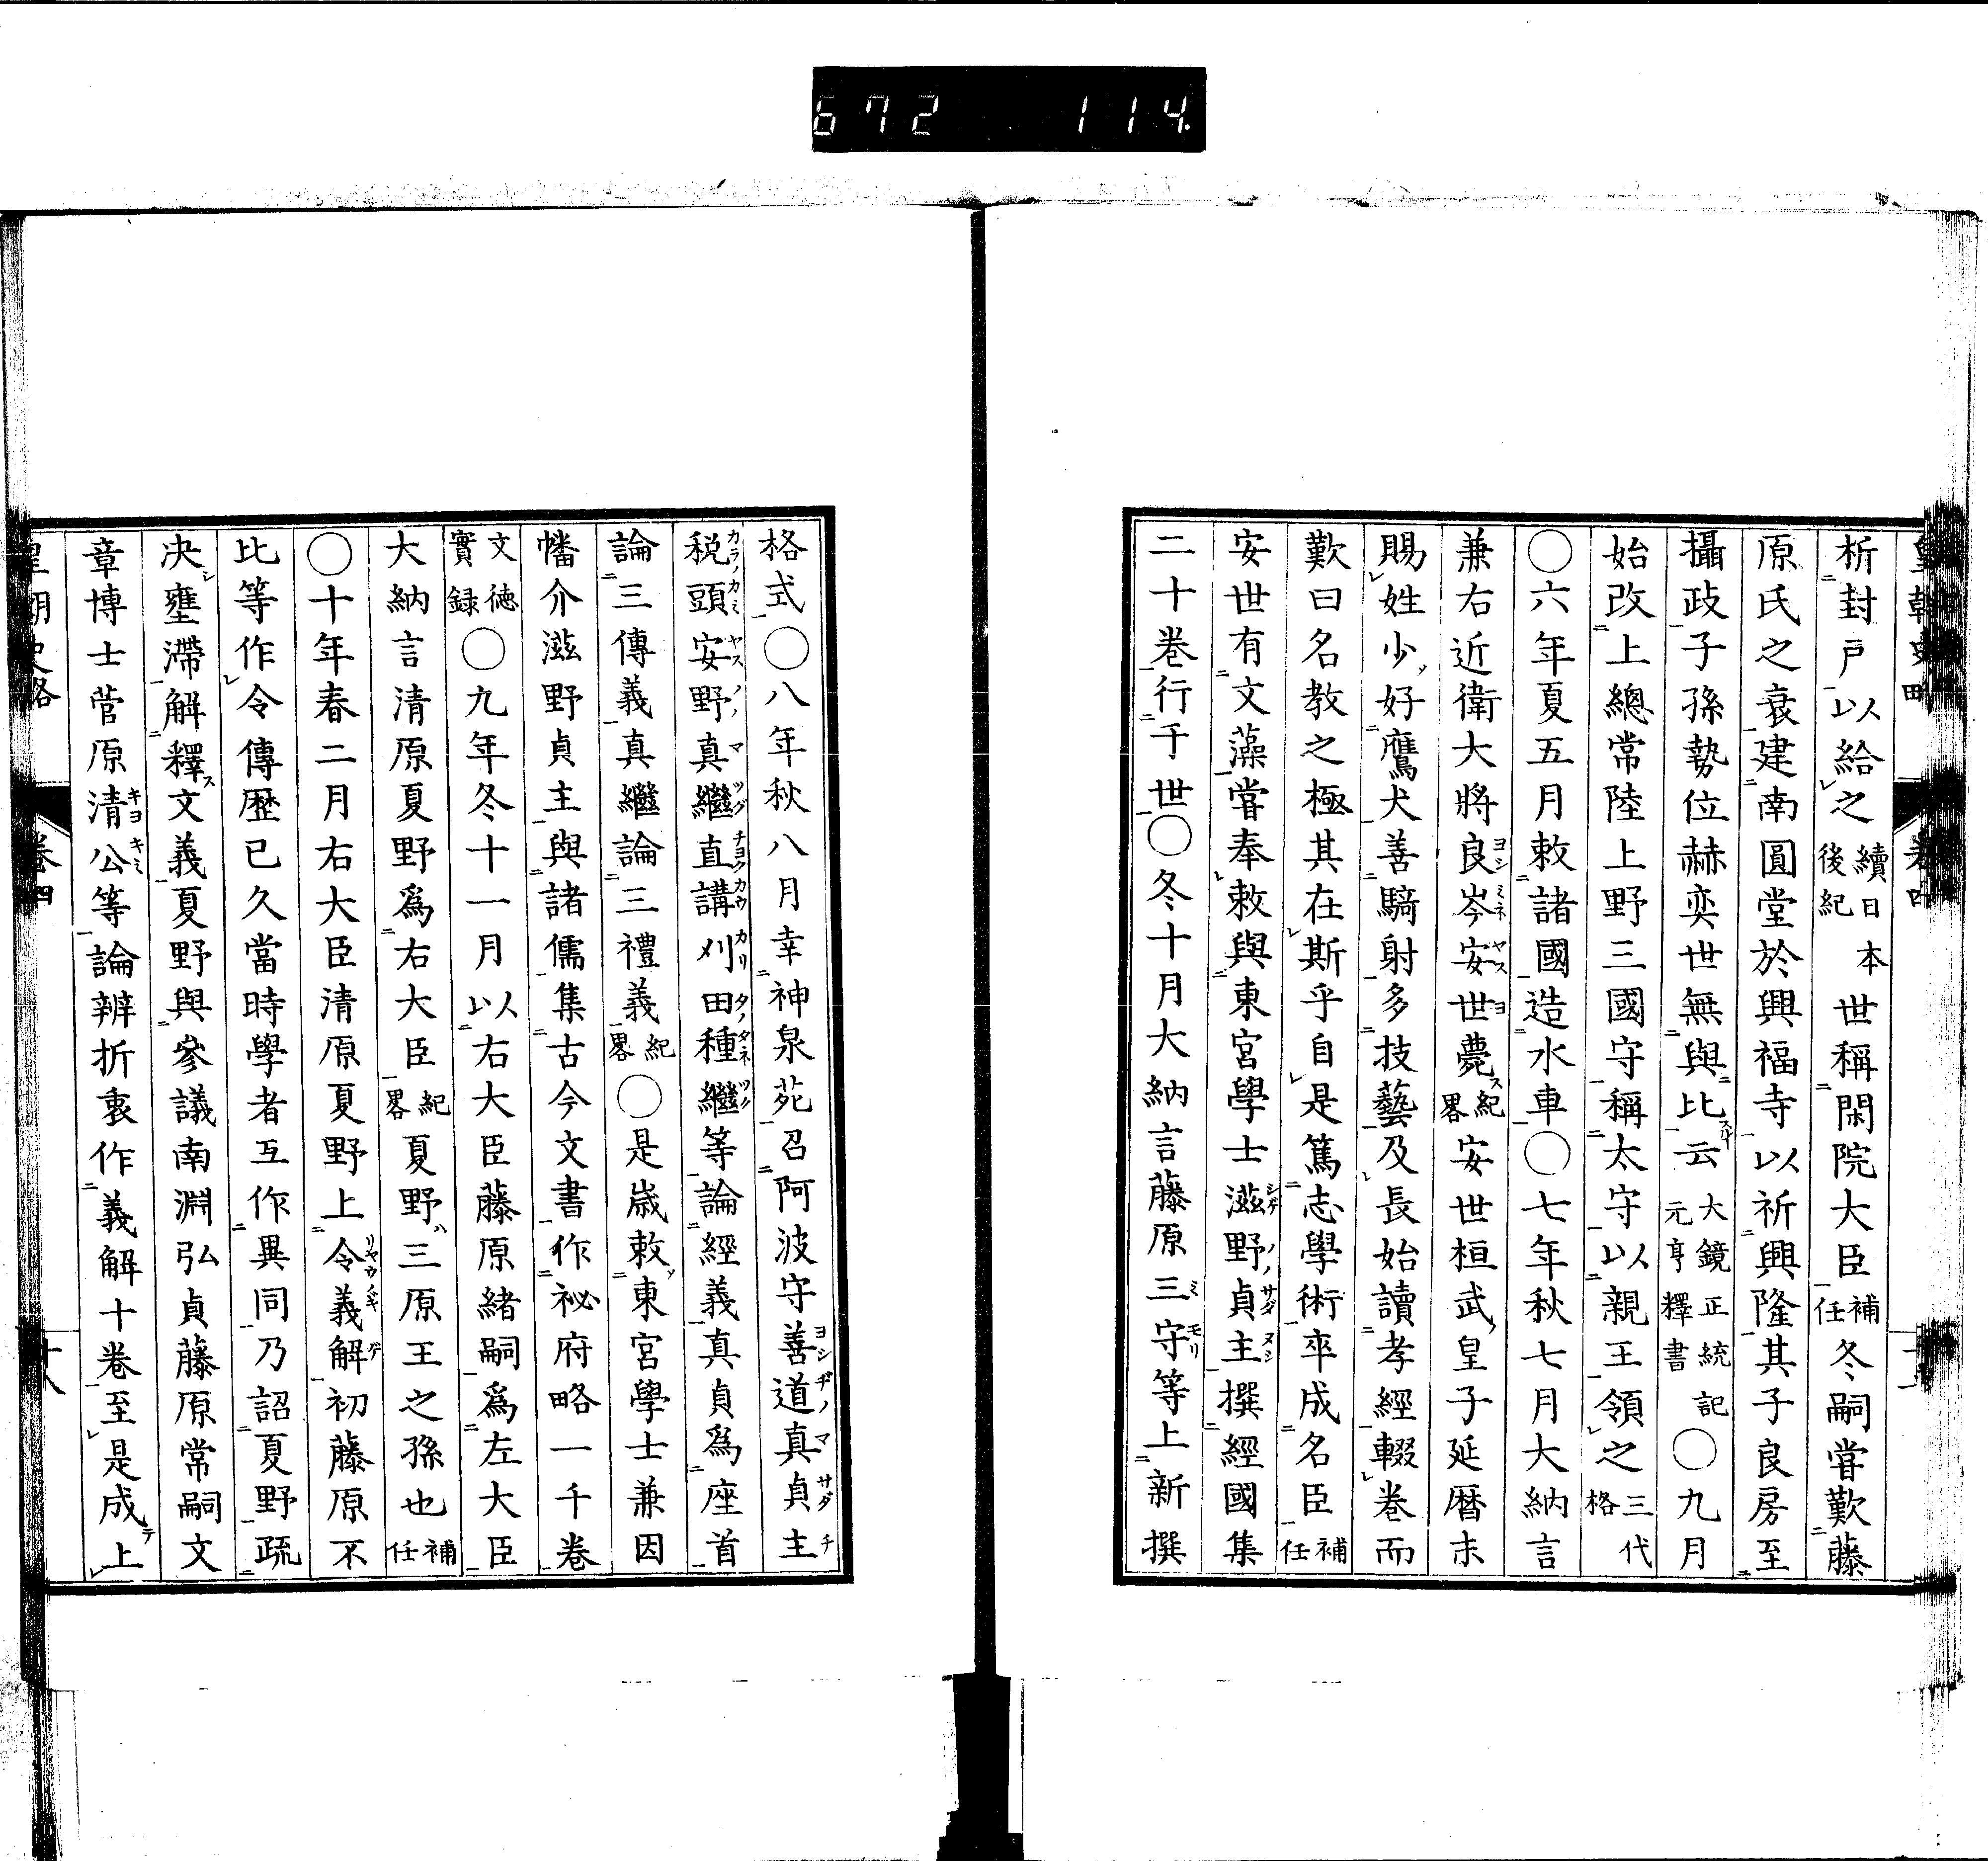 672 114
皇朝史略 卷四
析封戸以給之續日本後紀世稱閑院大臣補任冬嗣嘗歎藤
原氏之衰建南圓堂於興福寺以祈興隆其子良房至
攝政子孫勢位赫奕世無與比云大鏡正統記元亨釋書〇九月
始改上總常陸上野三國守稱太守以親王領之三代格
〇六年夏五月敕諸國造水車〇七年秋七月大納言
兼右近衛大將良岑安世薨紀畧安世桓武皇子延暦末
賜姓少好鷹犬善騎射多技藝及長始讀孝經輟卷而
歎曰名教之極其在斯乎自是篤志學術卒成名臣補任
安世有文藻嘗奉敕與東宮學士滋野貞主撰經國集
二十卷行于世〇冬十月大納言藤原三守等上新撰
格式〇八年秋八月幸神泉苑召阿波守善道真貞主
税頭安野真繼直講刈田種繼等論經義真貞爲座首
論三傳義真繼論三禮義紀畧〇是歳敕東宮學士兼因
幡介滋野貞主與諸儒集古今文書作祕府略一千卷
文德實録〇九年冬十一月以右大臣藤原緒嗣爲左大臣
大納言清原夏野爲右大臣紀畧夏野三原王之孫也補任
〇十年春二月右大臣清原夏野上令義解初藤原不
比等作令傳歴已久當時學者互作異同乃詔夏野疏
决壅滯解釋文義夏野與參議南淵弘貞藤原常嗣文
章博士菅原清公等論辨折衷作義解十卷至是成上
皇朝史略 卷四 十八